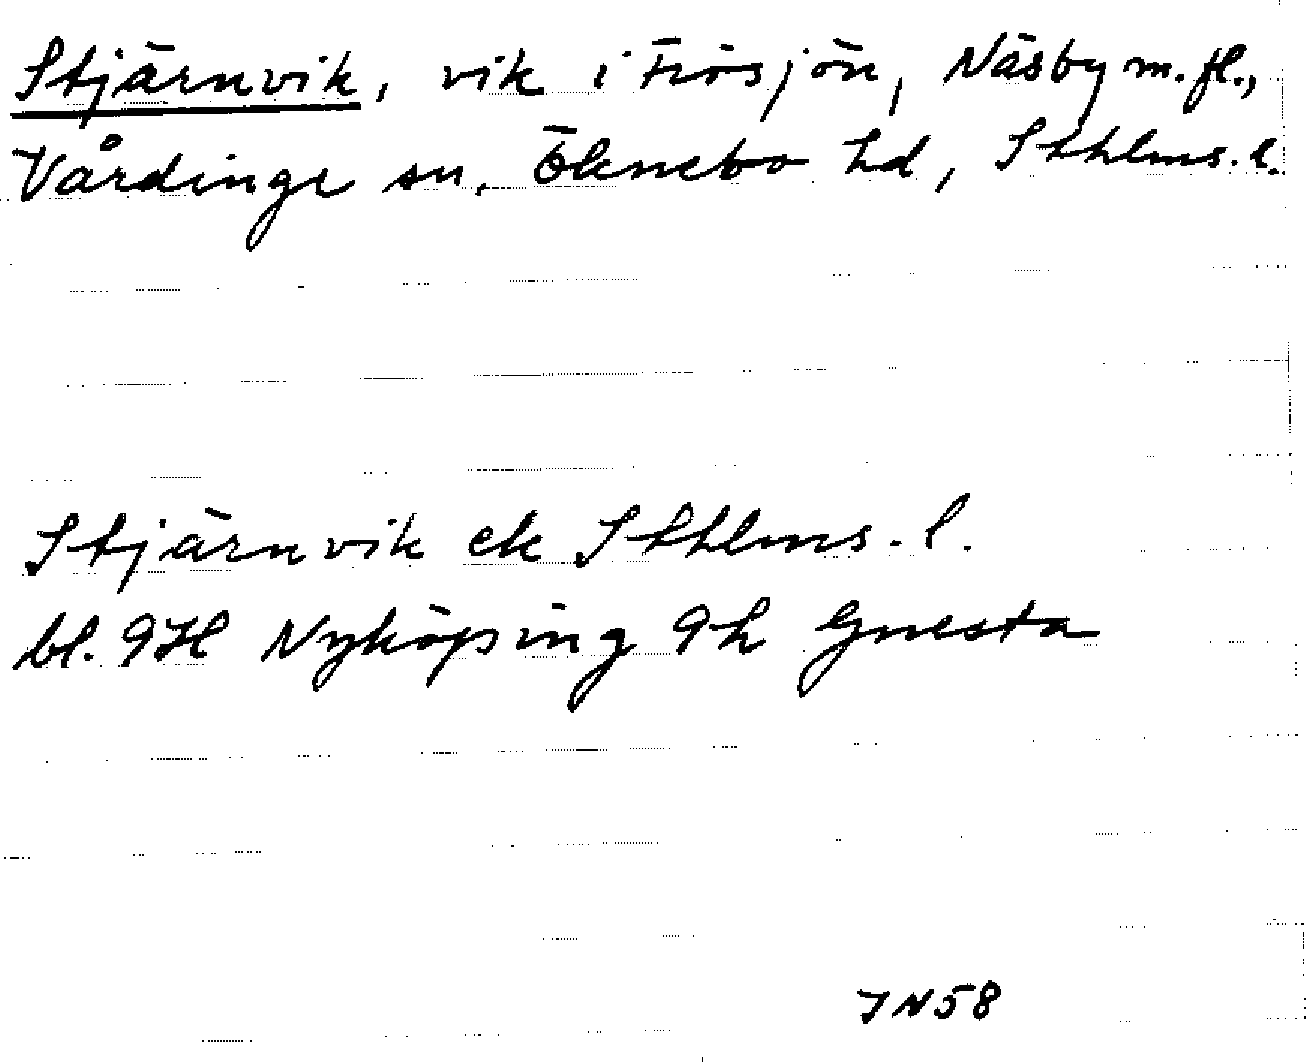 Stjärnvik, vik i Frösjön, Näsby m.fl.,
Vårdinge sn, Öknebo hd, Sthlms.l.
Stjärnvik ek Sthlms.l.
bl. 9H Nyköping 9h Gnesta
JN58